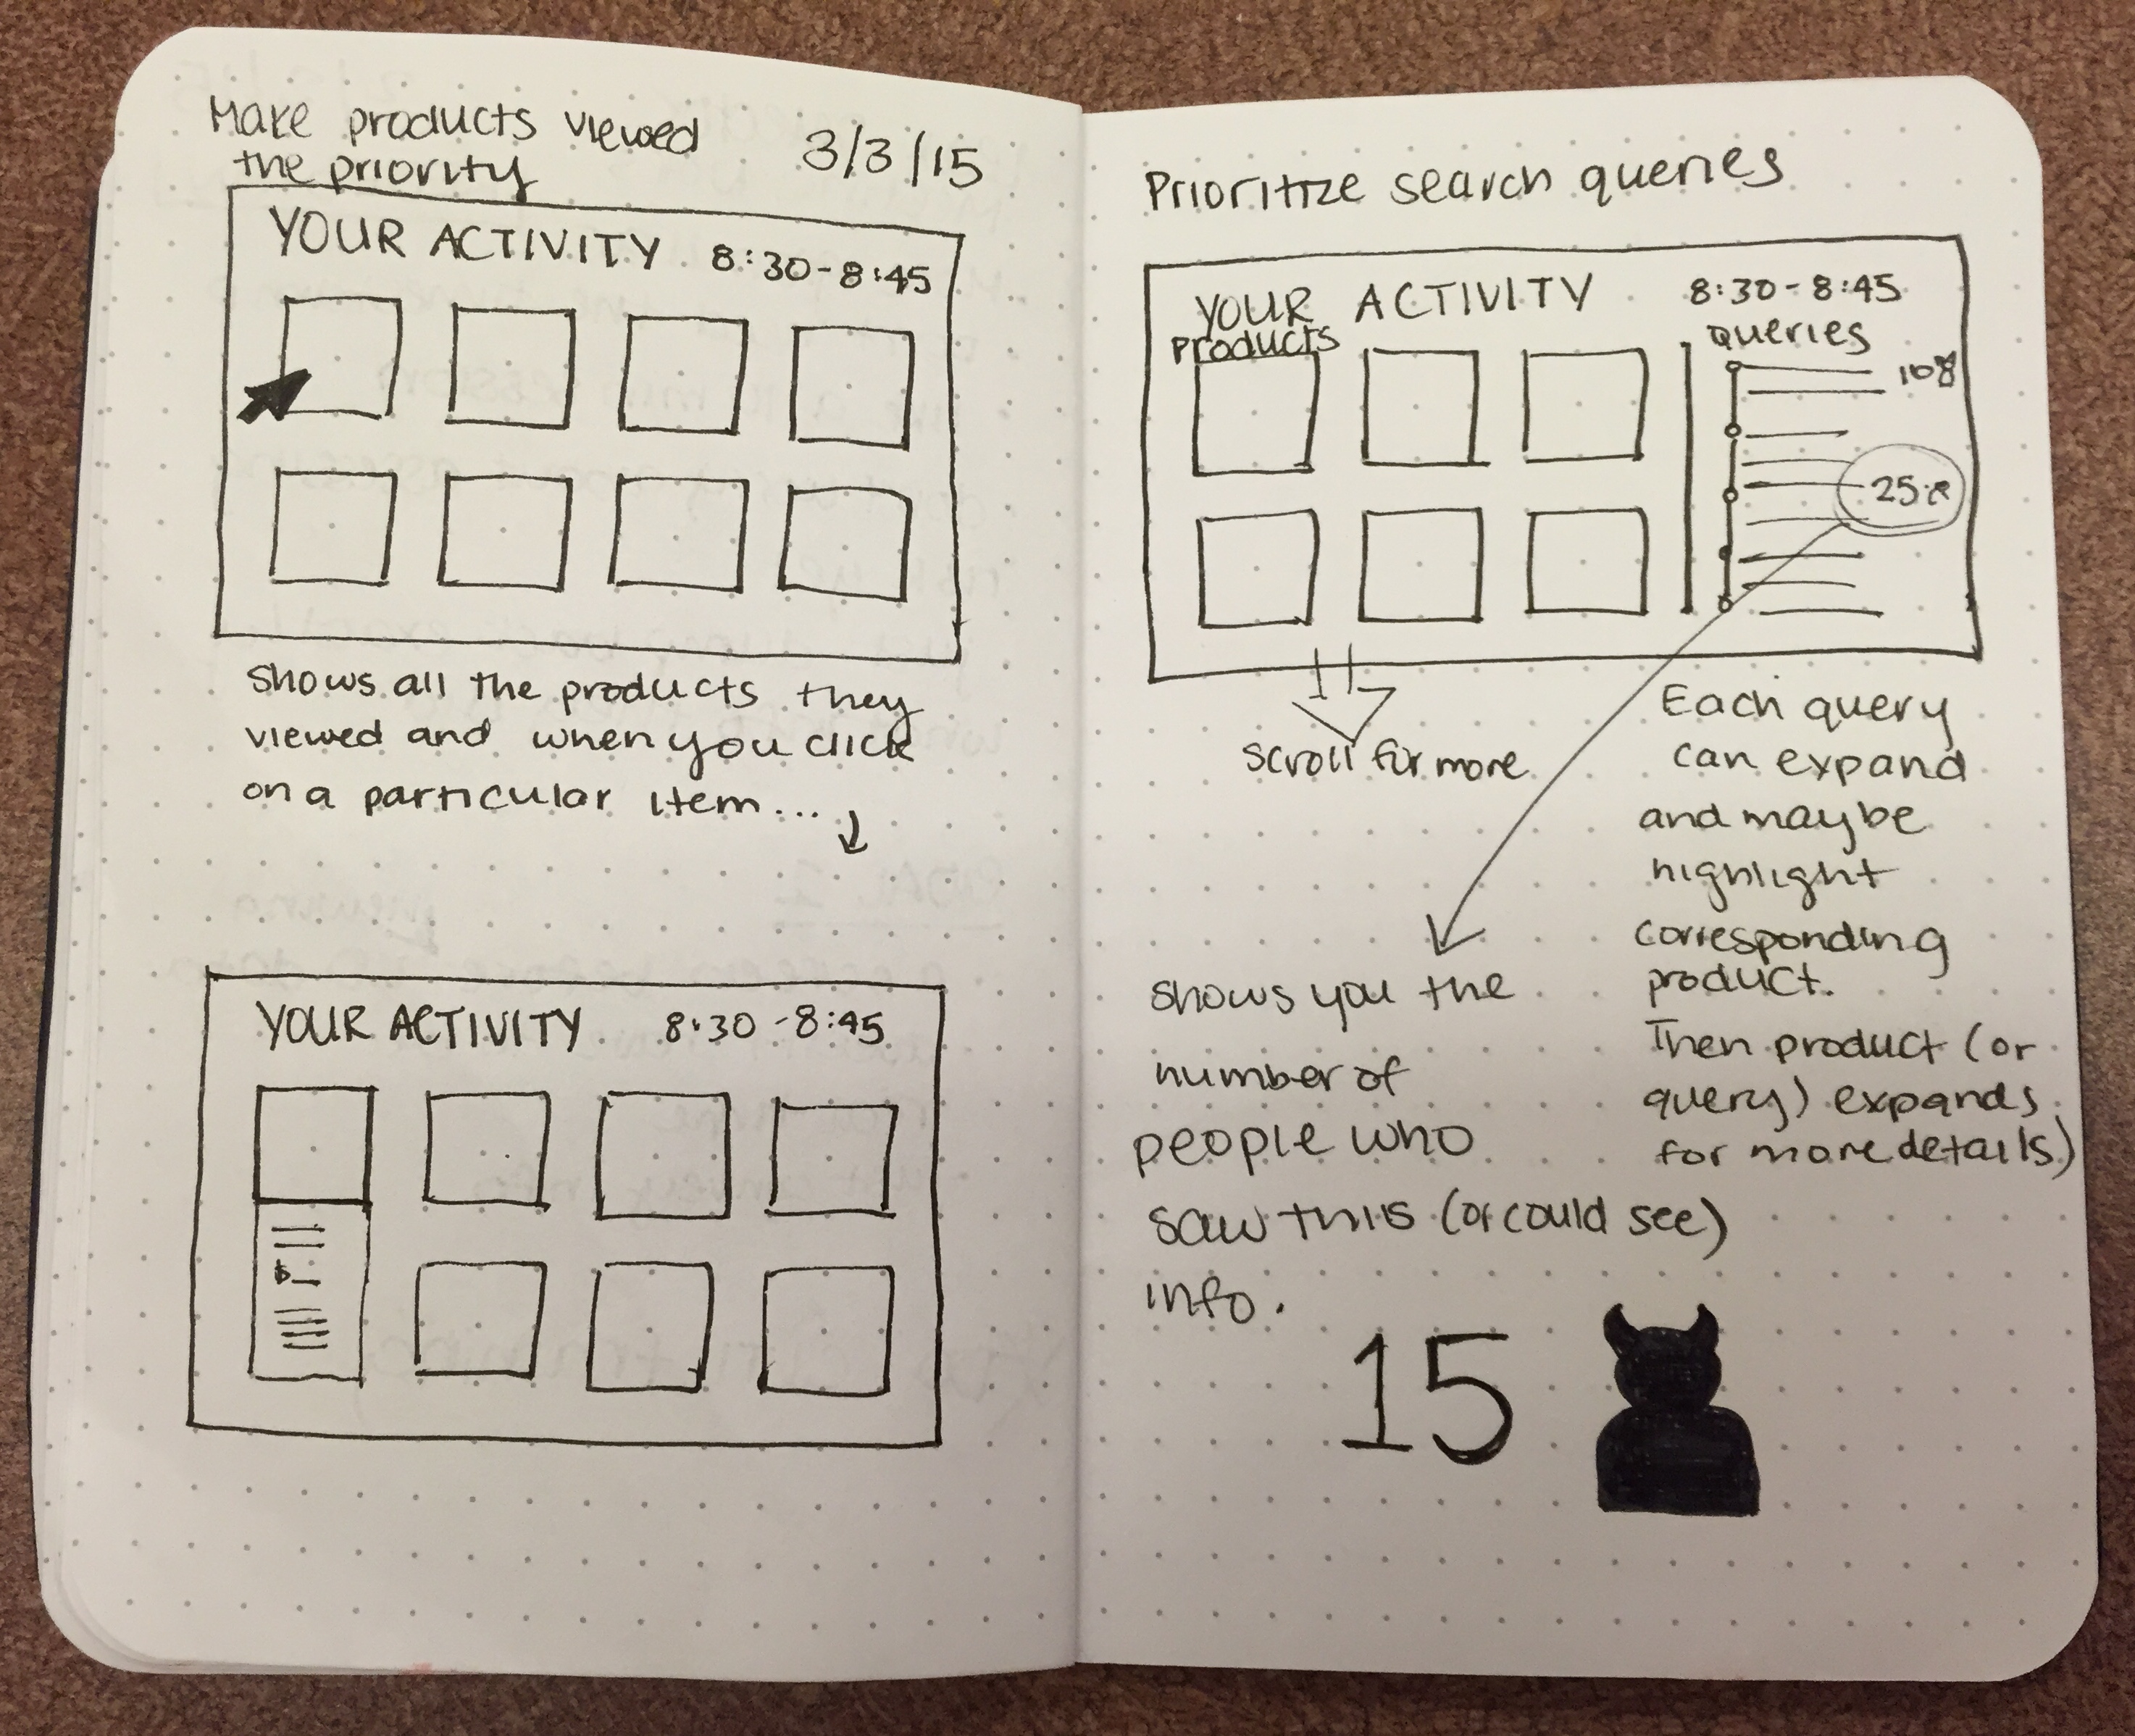 Make products viewed
the priority
3/3/15
YOUR ACTIVITY 8:30-8:45
shows all the products they
viewed and when you click
on a particular item...
YOUR ACTIVITY 8:30-8:45
$
Prioritize search queries
YOUR ACTIVITY 8:30-8:45
Products
queries
10
25
scroll for more
Each query
can expand
and maybe
highlight
corresponding
product.
Then product (or
query) expands
for more details)
shows you the
number of
people who
saw this (or could see)
info.
15